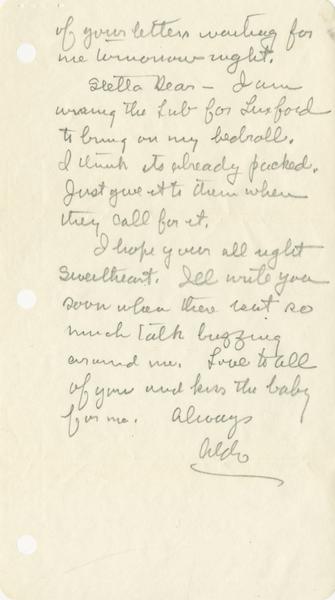 of your letters waiting for
me tomorrow night.
Stella Dear – I am
wiring the Sub for Luxford
to bring on my bedroll.
I think its already packed.
Just give it to them when
they call for it.
I hope your all right
sweetheart. Ill write you
soon when there isnt so
much talk buzzing
around me. Love to all
of you and kiss the baby
for me. Always
Aldo